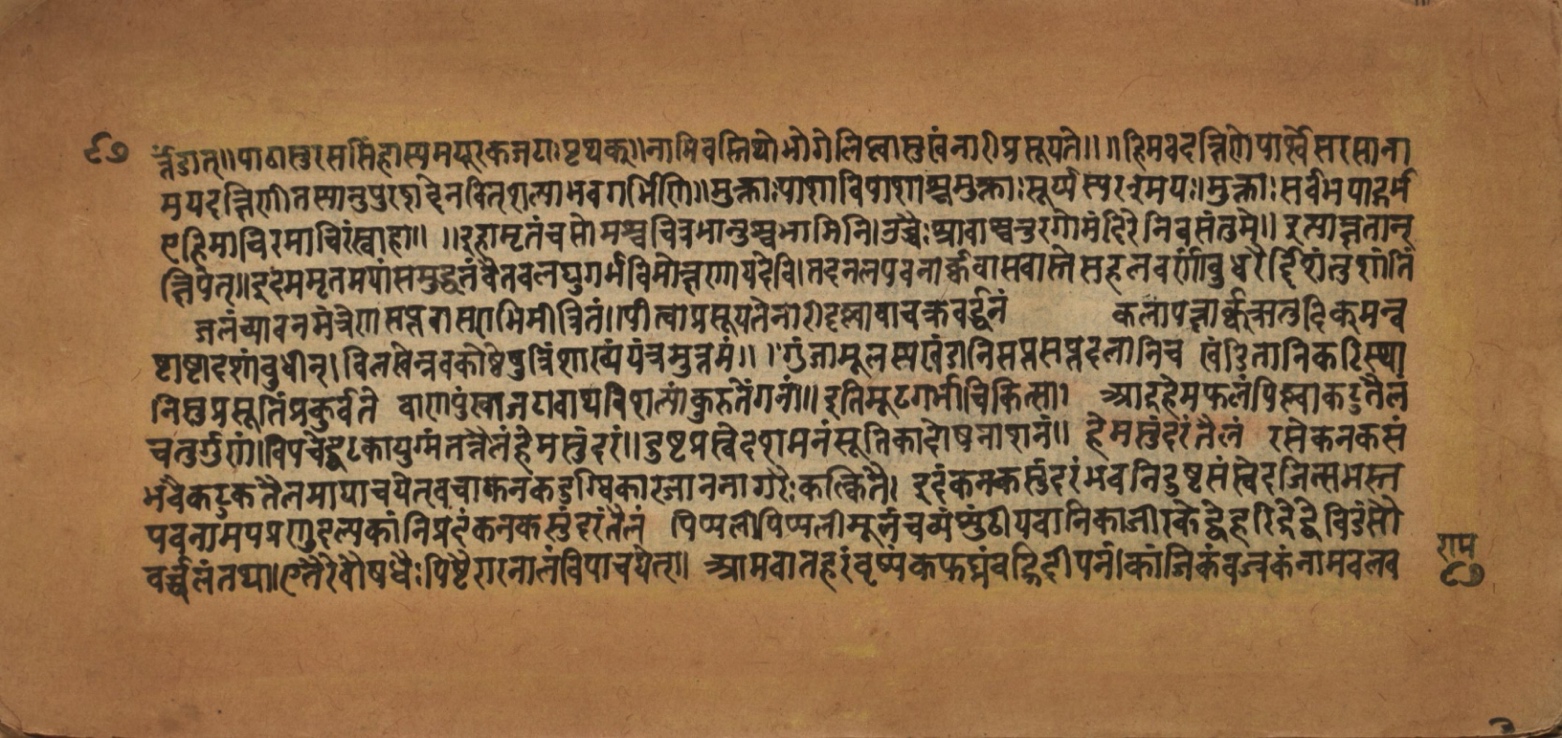 र्न्नडात्॥पाठासुरससिंहास्यमयूरकजटाःपृथक्॥नाभिवस्तियोभोगेलिप्त्वासुखंनारीप्रसूयते॥॥हिमवदक्षिणेपार्श्वेसरसाना
मयदक्षिणीतस्यानुपुरशब्देनविशल्याभवगर्भिणि॥मुक्ताःपाशाविपाशाश्चमुक्ताःसूर्य्यस्यरश्मयः॥मुक्ताःसर्वभयाद्गर्भ
एहिमाचिरमाचिरंस्वाहा॥ ॥इहामृतंचसोमश्चचित्रभानुश्चभामिनि।उच्चैःश्रवाश्चतुरगोमंदिरेनिवसंतुमे॥ इत्याक्षतान्
क्षिपेत्॥इदममृतमपांसमुद्धृतंवैतवलघुगर्भविमोक्षणायदेवि।तदनलपवनार्कवासवास्तेसहलवणांबुधरैर्द्दिशंतुशांतिं
जलंच्यावनमंत्रेणसप्तवारा भिमंत्रितं।पीत्वाप्रसूयतेनारीदृष्ट्वावाचक्रवर्द्धनं कलापक्षार्कऋतुदिक्मन्व
ष्टाष्टादशांबुधीन्।विलखेन्नवकोष्ठेषुत्रिंशाख्यंयंत्रमुत्तमं॥ ।गुंजामूलस्यखंडानिसप्तसप्तदलानिच खंडितानिकटिस्था
निसुप्रसूतिंप्रकुर्वते बाणपुंखाजटावाथविशल्यांकुरुतेंगनां॥इतिमूढगर्भचिकित्सा। आर्द्रहेमफलंपिष्ट्वाकटुतैलं
चतुर्गुणं।विपचेद्घटिकायुग्मंतत्तैलंहेमसुंदरं॥दुष्टप्रस्वेदशमनंसूतिकादोषनाशनं॥ हेमसुंदरंतैलं रसेकनकसं
भवैकटुकतैलमापाचयेत्वचाकनककट्टग्विकारजानना गरैःकल्कितै। इदंकनकसुंदरंभवतिदुष्टसंस्वेदजित्समस्त
पवनामयप्रणुदल्पकांतिप्रदंकनकसुंदरंतैलं पिप्पलीपिप्पलीमूलंचव्यंशुंठीयवानिकाजीरकेद्वेहरिद्रेद्वेविडंसौ
वर्च्चलंतथा।एतैरेवौषधैःपिष्टैरारनालंविपाचयेत्। आमवातहरंवृष्यंकफघ्नंवह्निदीपनं।कांजिकंवज्रकंनामबलव
राम